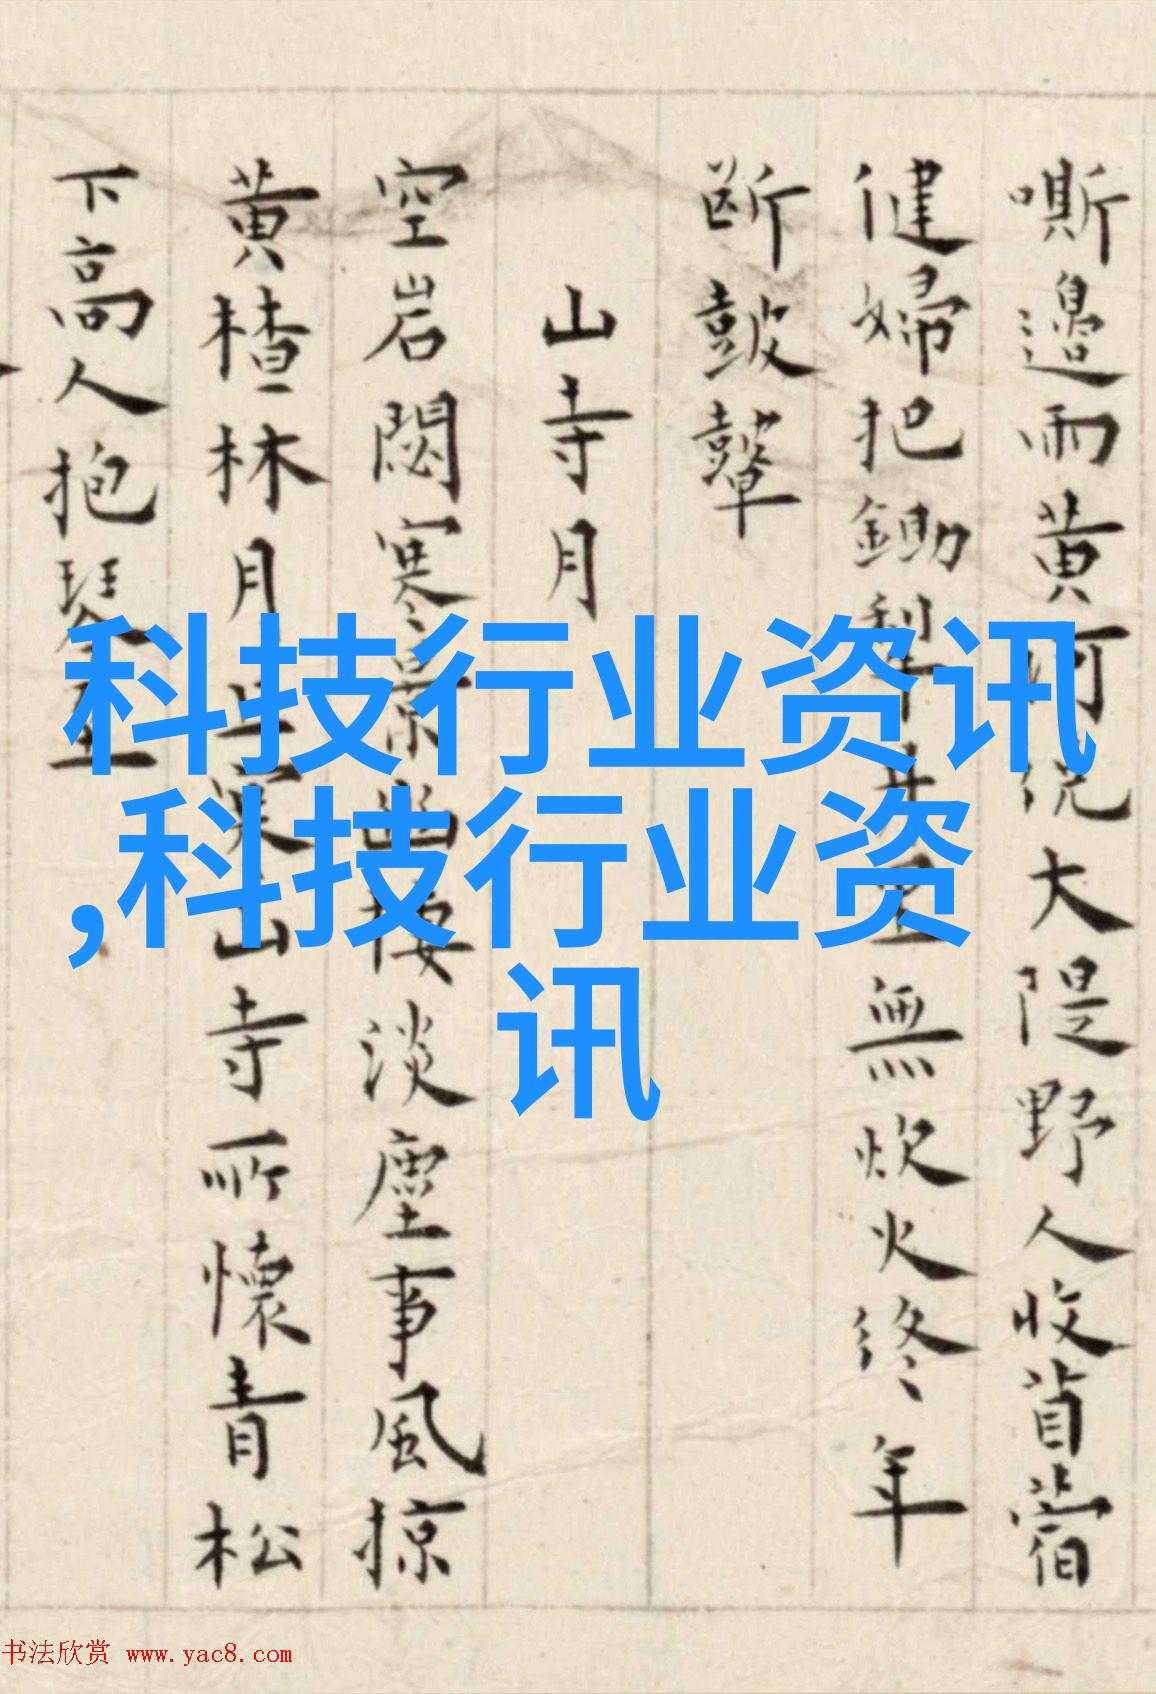 嘶邊雨黄河繞大隄野人收䈂蓿
健婦把鋤犁井里無炊火終年
斷鼓鼙
山寺月
空岩閟寒景幽棲淡塵事風掠
黄楂林月上寒山寺所懷青松
下高人抱琴至
科技行业资讯
,科技行业资
讯
书法欣赏 www.yac8.com